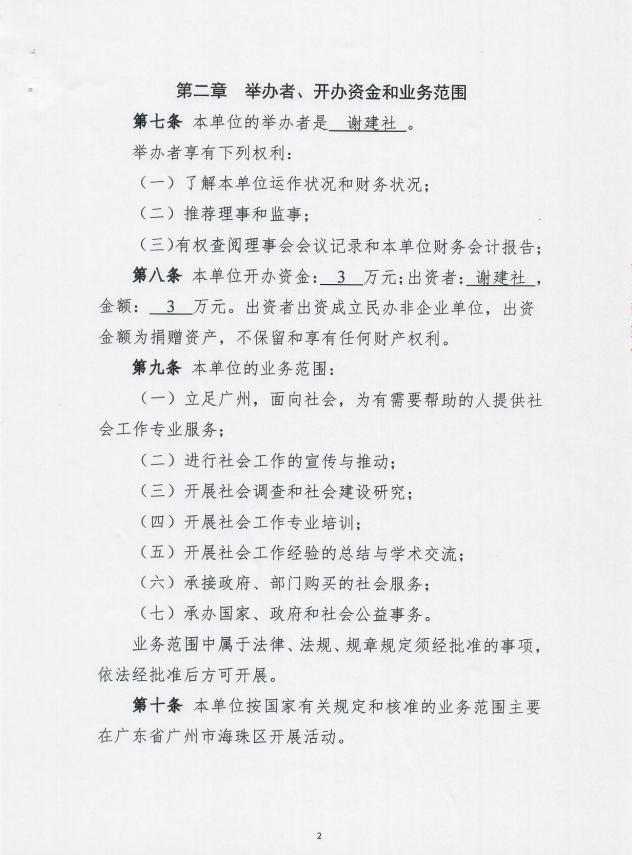 第二章 举办者、开办资金和业务范围
第七条 本单位的举办者是 谢建社 。
举办者享有下列权利：
（一）了解本单位运作状况和财务状况；
（二）推荐理事和监事；
（三）有权查阅理事会会议记录和本单位财务会计报告；
第八条 本单位开办资金： 3 万元；出资者： 谢建社 ，
金额： 3 万元。出资者出资成立民办非企业单位，出资
金额为捐赠资产，不保留和享有任何财产权利。
第九条 本单位的业务范围：
（一）立足广州，面向社会，为有需要帮助的人提供社
会工作专业服务；
（二）进行社会工作的宣传与推动；
（三）开展社会调查和社会建设研究；
（四）开展社会工作专业培训；
（五）开展社会工作经验的总结与学术交流；
（六）承接政府、部门购买的社会服务；
（七）承办国家、政府和社会公益事务。
业务范围中属于法律、法规、规章规定须经批准的事项，
依法经批准后方可开展。
第十条 本单位按国家有关规定和核准的业务范围主要
在广东省广州市海珠区开展活动。
2